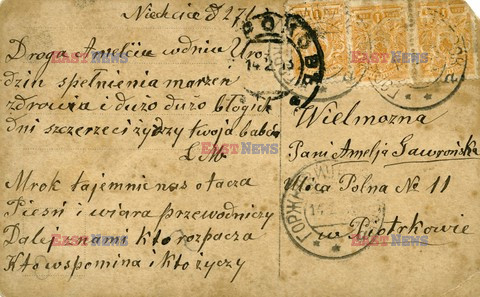 Niekcia d 27/1
Droga Amelciu w dniu Uro
dzin spełnienia marzeń
zdrowia i dużo dużo błogich
dni szczerze ci życzy twoja babcia
L M
Mrok tajemnic nas otacza
Pieśń i wiara przewodniczy
Dalej z nami kto rozpacza
Kto wspomina i kto życzy
Wielmożna
Pani Amelja Gawrońska
Ulica Polna No 11
w Piotrkowie
EAST NEWS
EAST NEWS
EAST NEWS
EAST NEWS
EAST NEWS